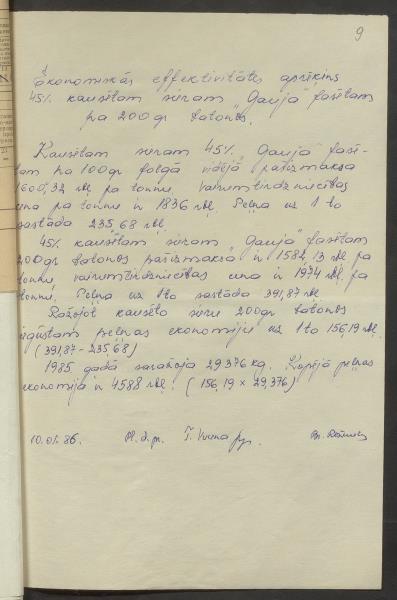 9
Ekonomiskās effektivitātes aprēķins
45% kausētam sieram "Gauja" fasētam
pa 200 gr batonos.
Kausētam sieram 45% "Gauja" fasē-
tam pa 100 gr folijā vidējā pašizmaksa
1600,32 rbļ pa tonnu, vairumtirdzniecības
cena pa tonnu ir 1836 rbļ. Peļņa uz 1 to
sastāda 235,68 rbļ.
45% kausētam sieram "Gauja" fasētam
200 gr batonos pašizmaksa ir 1582,13 rbļ pa
tonnu, vairumtirdzniecības cena ir 1974 rbļ pa
tonnu. Peļņa uz 1 to sastāda 391,87 rbļ.
Ražojot kausēto sieru 200 gr batonos
iegūstam peļņas ekonomiju uz 1 to 156,19 rbļ.
(391,87 - 235,68)
1985 gadā saražoja 29376 kg. Kopējā peļņas
ekonomija ir 4588 rbļ. (156,19 × 29,376)
10.01.86.